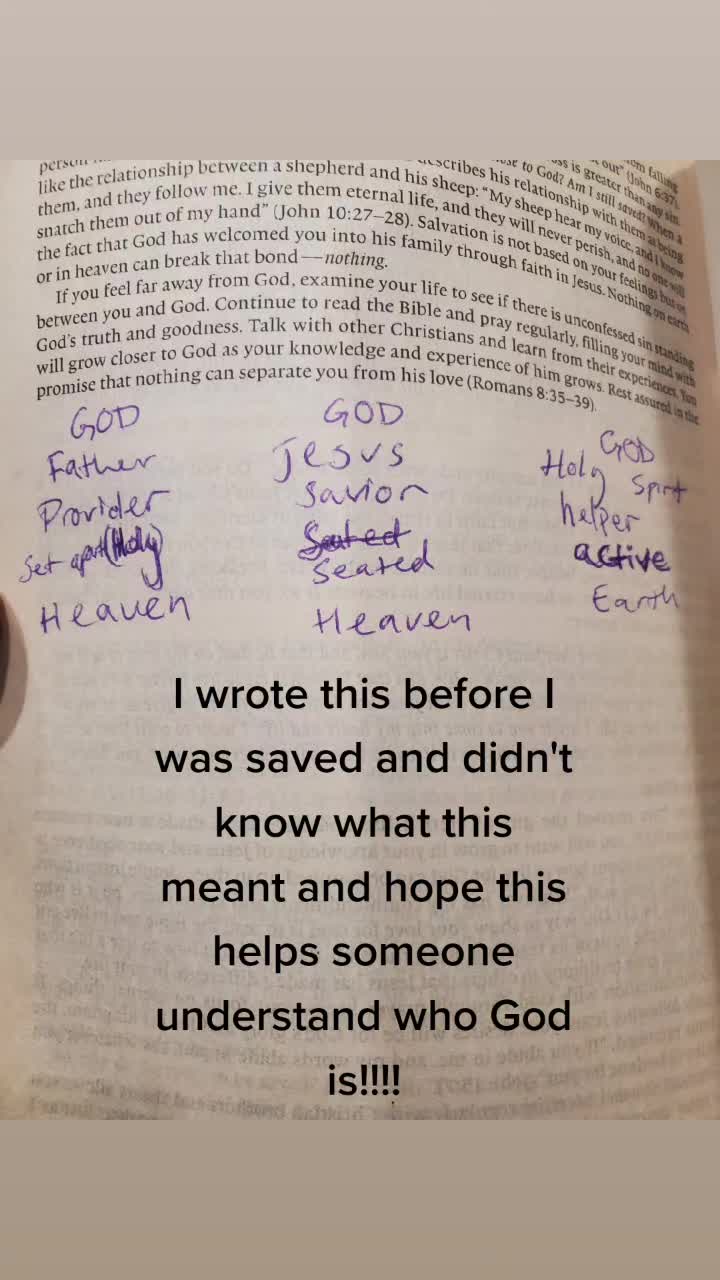 like the relationship between a shepherd and his sheep: "My sheep hear my voice, and I know
them, and they follow me. I give them eternal life, and they will never perish, and no one will
snatch them out of my hand" (John 10:27–28). Salvation is not based on your feelings but on
the fact that God has welcomed you into his family through faith in Jesus. Nothing on earth
or in heaven can break that bond—nothing.
If you feel far away from God, examine your life to see if there is unconfessed sin standing
between you and God. Continue to read the Bible and pray regularly, filling your mind with
God's truth and goodness. Talk with other Christians and learn from their experiences. You
will grow closer to God as your knowledge and experience of him grows. Rest assured in the
promise that nothing can separate you from his love (Romans 8:35–39).
GOD
Father
Provider
Set apart (Holy)
Heaven
GOD
Jesus
Savior
Seated
Seated
Heaven
GOD
Holy Spirt
helper
active
Earth
I wrote this before I
was saved and didn't
know what this
meant and hope this
helps someone
understand who God
is!!!!